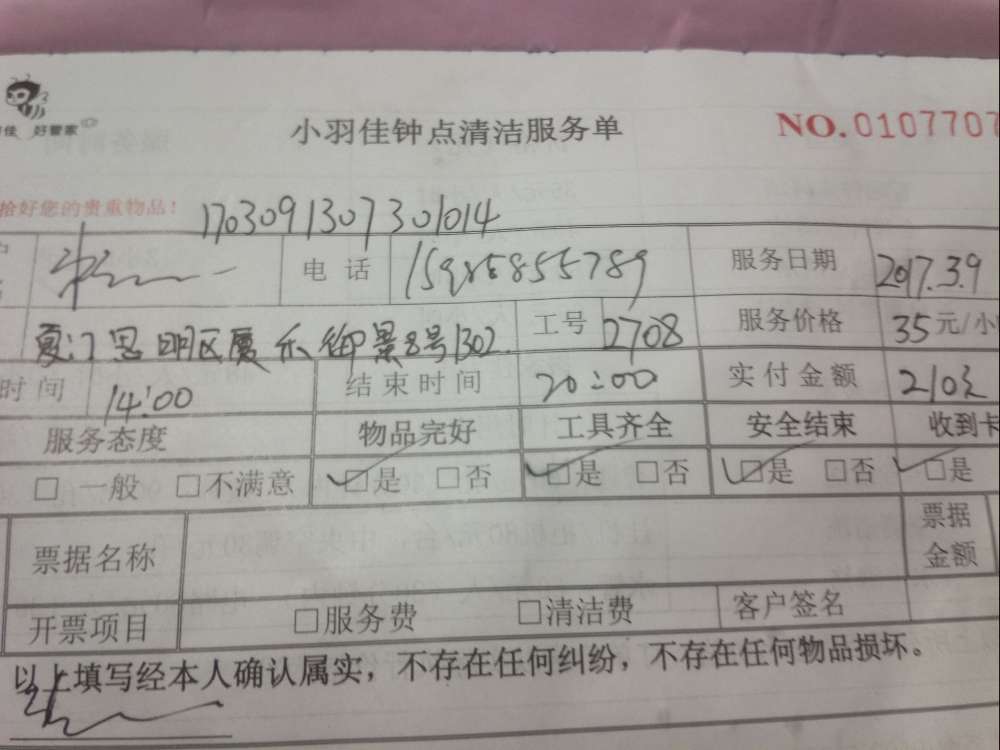 佳 好管家
小羽佳钟点清洁服务单
NO.0107707
拾好您的贵重物品!
1703091307301014
电 话 15985855789 服务日期 2017.3.9
厦门思明区厦禾御景8号1302 工号 2708 服务价格 35元/小
时间 14:00 结束时间 20:00 实付金额 210元
服务态度 物品完好 工具齐全 安全结束 收到卡
□ 一般 □不满意 ☑是 □否 ☑是 □否 ☑是 □否 ☑是
票据名称 票据金额
开票项目 □服务费 □清洁费 客户签名
以上填写经本人确认属实，不存在任何纠纷，不存在任何物品损坏。